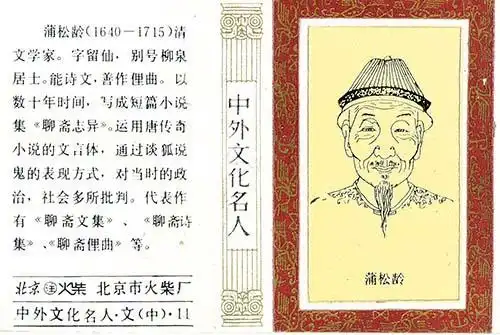 蒲松龄(1640—1715)清
文学家。字留仙，别号柳泉
居士。能诗文，善作俚曲。以
数十年时间，写成短篇小说
集《聊斋志异》。运用唐传奇
小说的文言体，通过谈狐说
鬼的表现方式，对当时的政
治，社会多所批判。代表作
有《聊斋文集》、《聊斋诗
集》、《聊斋俚曲》等。
北京 注 火柴 北京市火柴厂
中外文化名人·文(中)·11
中外文化名人
蒲松龄